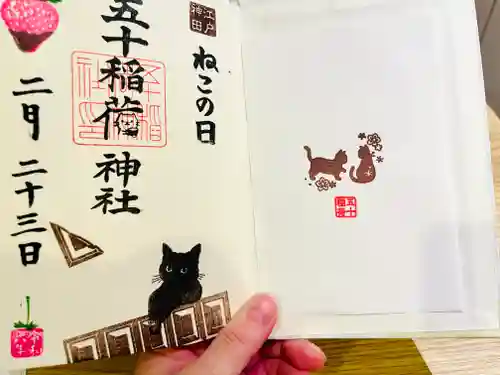 江戸
神田
ねこの日
五十稲荷神社
二月二十三日
五十
稲荷